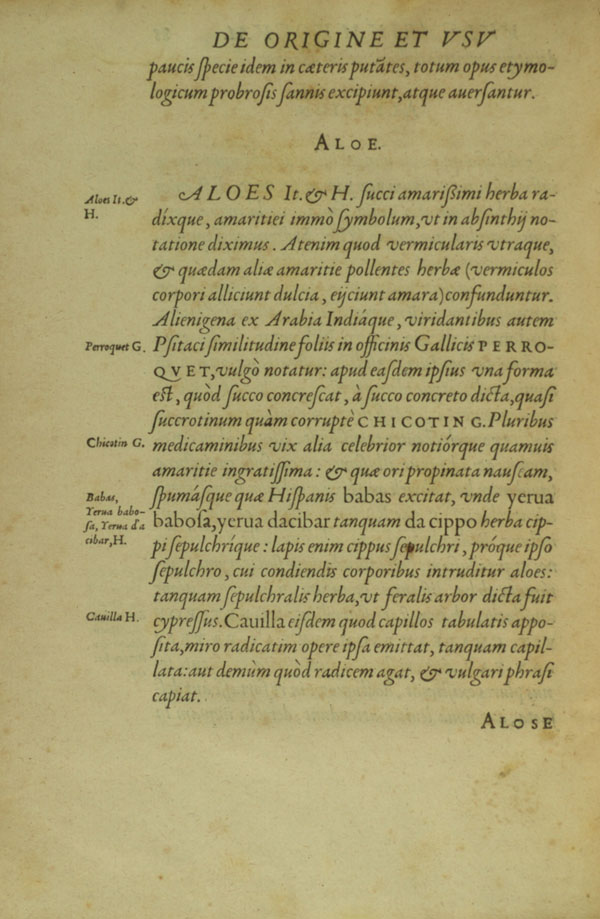 DE ORIGINE ET VSV
paucis specie idem in cæteris putātes, totum opus etymo-
logicum probrosis sannis excipiunt, atque auersantur.
ALOE.
Aloes It. &
H.
ALOES It. & H. succi amarißimi herba ra-
dixque, amaritiei immò symbolum, vt in absinthij no-
tatione diximus. Atenim quod vermicularis vtraque,
& quædam aliæ amaritie pollentes herbæ (vermiculos
corpori alliciunt dulcia, eijciunt amara) confunduntur.
Alienigena ex Arabia Indiáque, viridantibus autem
Perroquet G.
Psitaci similitudine foliis in officinis Gallicis PERRO-
QVET, vulgò notatur: apud easdem ipsius vna forma
est, quòd succo concrescat, à succo concreto dicta, quasi
succrotinum quàm corruptè CHICOTIN G. Pluribus
Chicotin G.
medicaminibus vix alia celebrior notiórque quamuis
amaritie ingratissima: & quæ ori propinata nauseam,
Babas,
Yerua babo-
sa, Yerua d'a
cibar, H.
spumásque quæ Hispanis babas excitat, vnde yerua
babosa, yerua dacibar tanquam da cippo herba cip-
pi sepulchríque: lapis enim cippus sepulchri, próque ipso
sepulchro, cui condiendis corporibus intruditur aloes:
tanquam sepulchralis herba, vt feralis arbor dicta fuit
Cauilla H.
cypressus. Cauilla eisdem quod capillos tabulatis appo-
sita, miro radicatim opere ipsa emittat, tanquam capil-
lata: aut demùm quòd radicem agat, & vulgari phrasi
capiat.
ALOSE